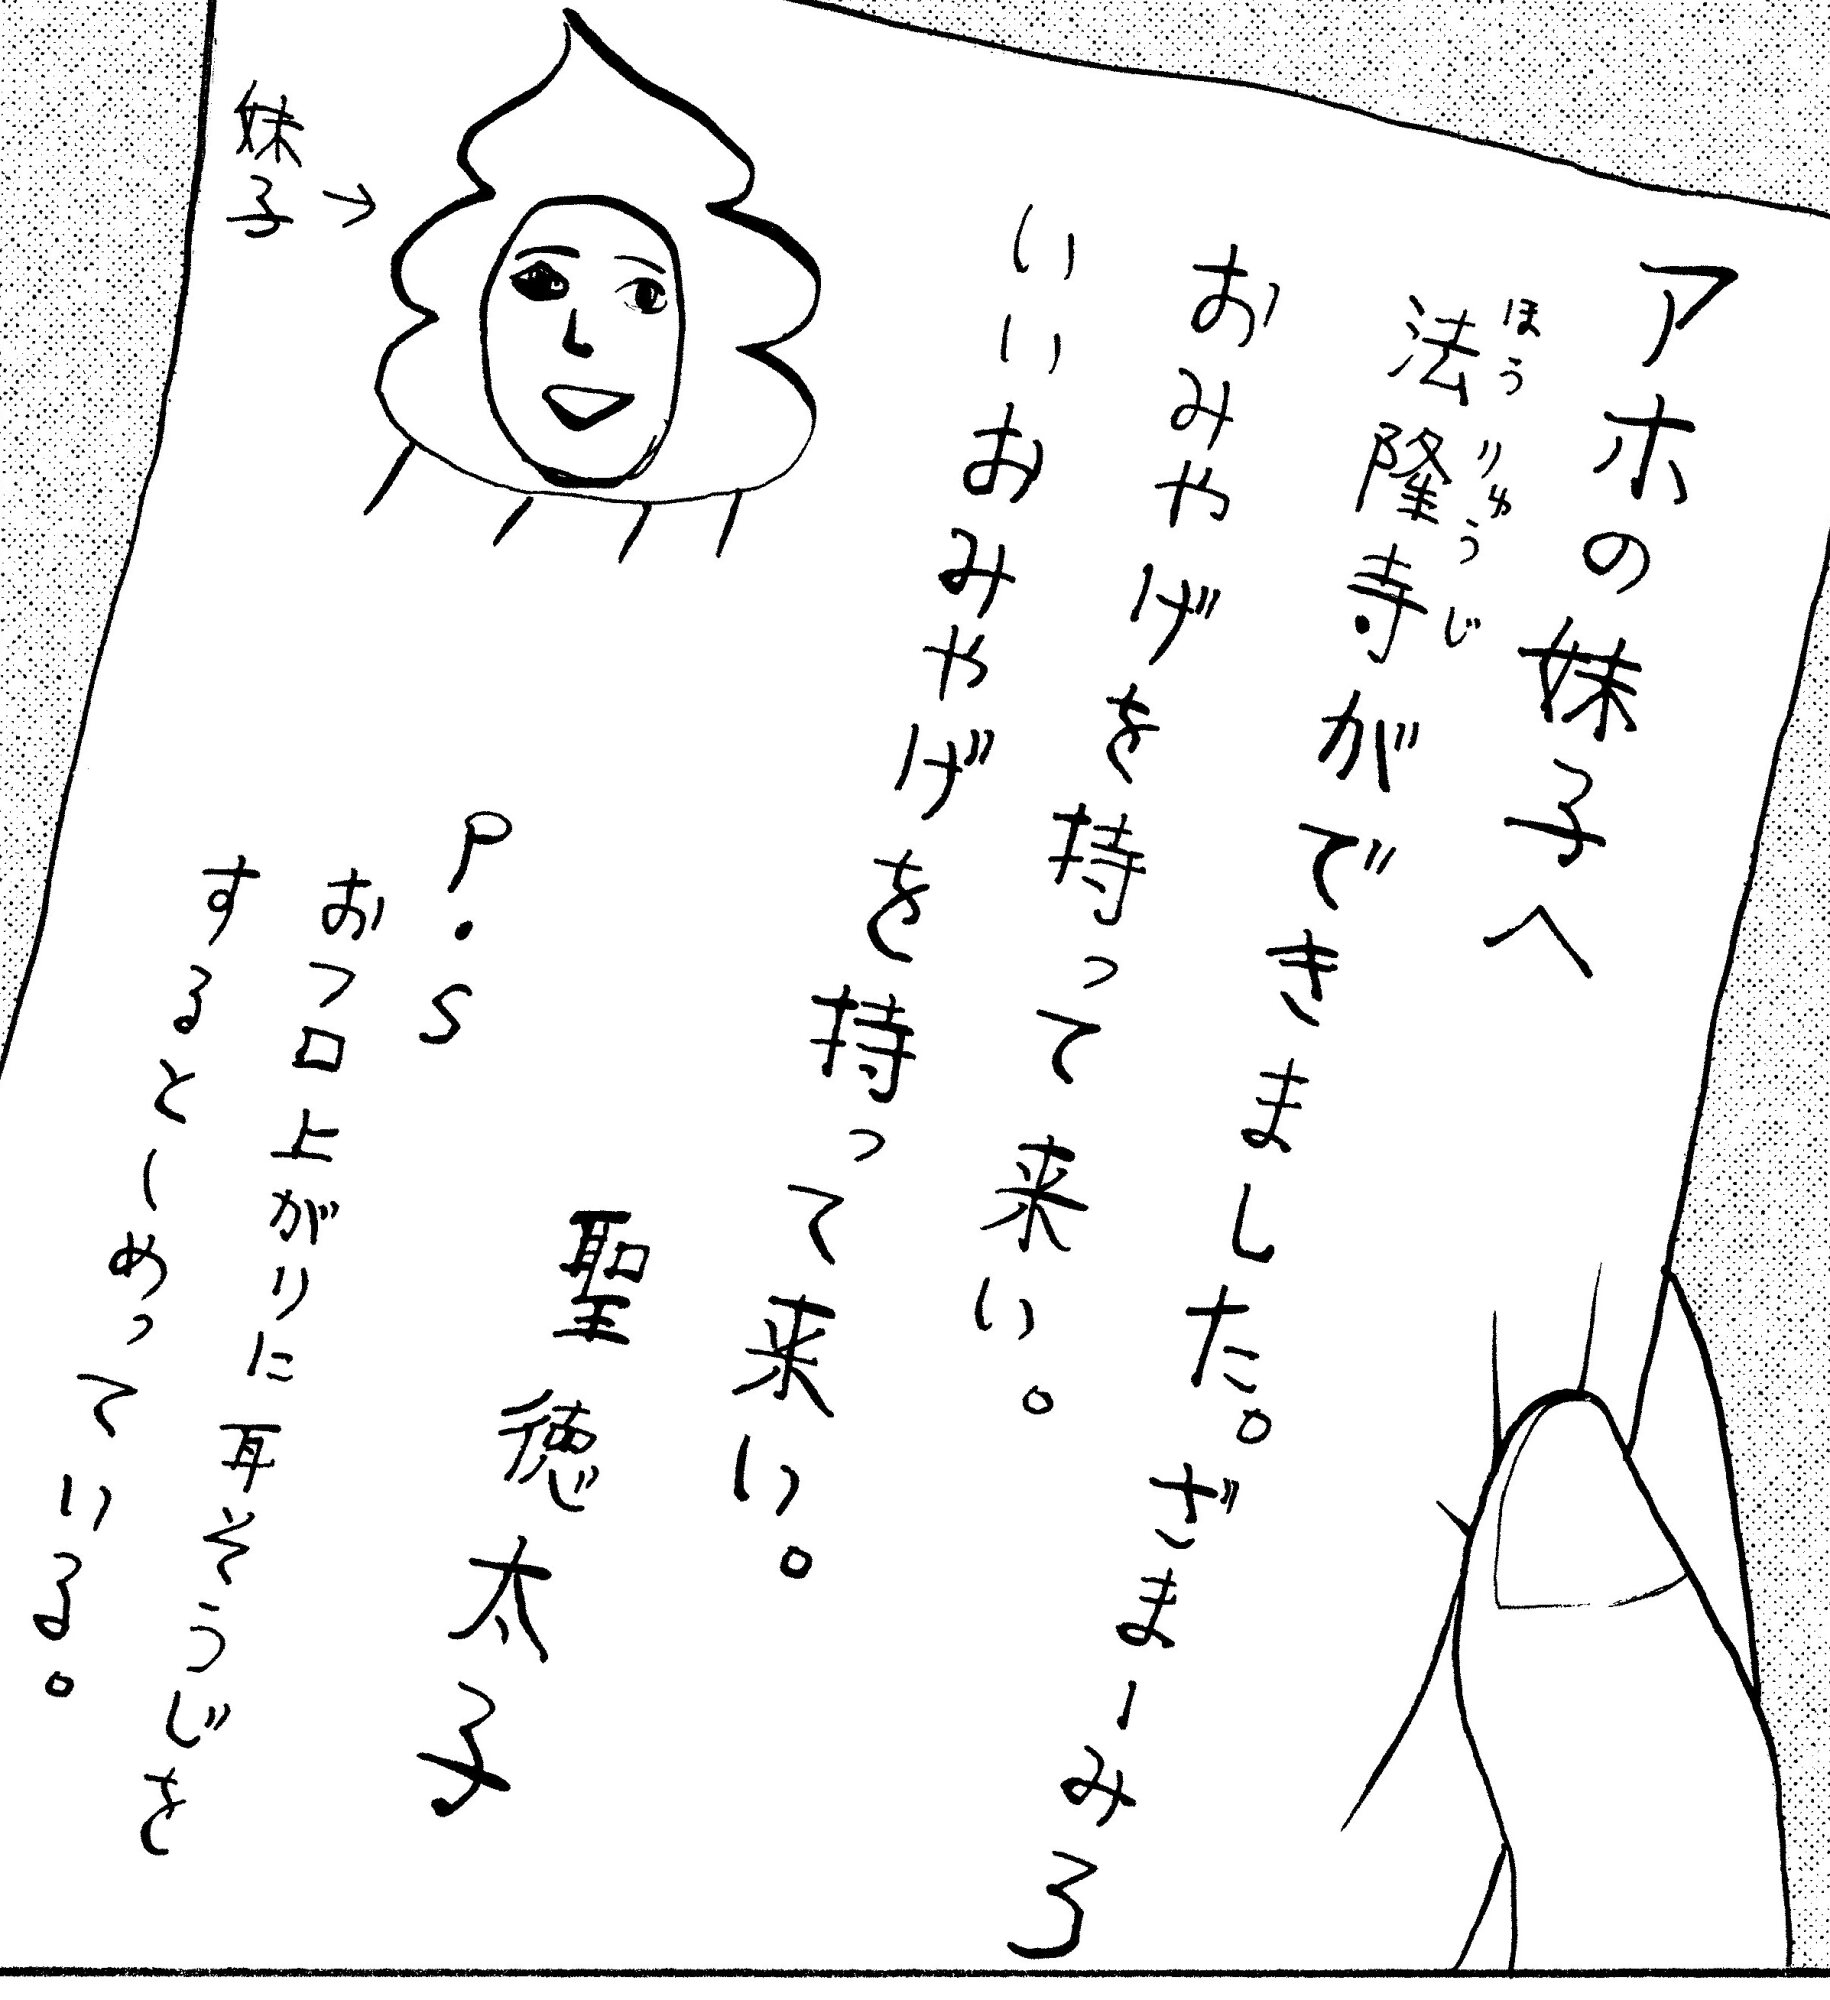 アホの妹子へ
法隆寺ができました。ざまーみろ
ほうりゅうじ
おみやげを持って来い。
いいおみやげを持って来い。
聖徳太子
P.S
おフロ上がりに耳そうじを
するとーめっている。
妹子→